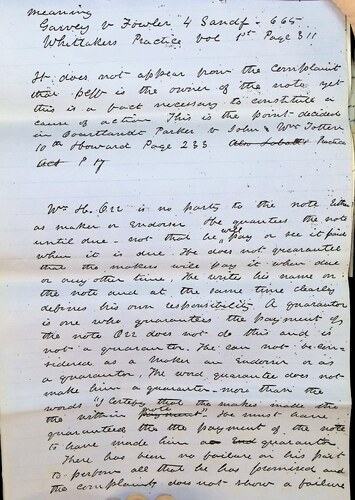 meaning
Garvey v Fowler 4 Sandf - 665
Whittakers Practice vol 1st Page 311
It does not appear from the complaint
that plff is the owner of the note yet
this is a fact necessary to constitute a
cause of action This is the point decided
in Courtlandt Parker v John & Wm Totten
10th Howard Page 233 Practice
Act P 17
Wm H. Orr is no party to the note Either
as maker or Endorser He guarantees the note
until due - not that he will pay or see it paid
when it is due. He does not guarantee
that the makers will pay it when due
or any other time. He write his name on
the note and at the same time clearly
defines his own responsibility A guarantor
is one who guarantees the payment of
the note Orr does not do this and is
not a guarantor. He can not be con-
sidered as a maker an Endorser or as
a guarantor. The word guarantee does not
make him a guarantor more than the
words "I certify that the makers make the
the within note". He must have
guaranteed the the payment of the note
to have made him a guarantor
There has been no failure on his part
to perform all that he has promised and
the complaint does not show a failure